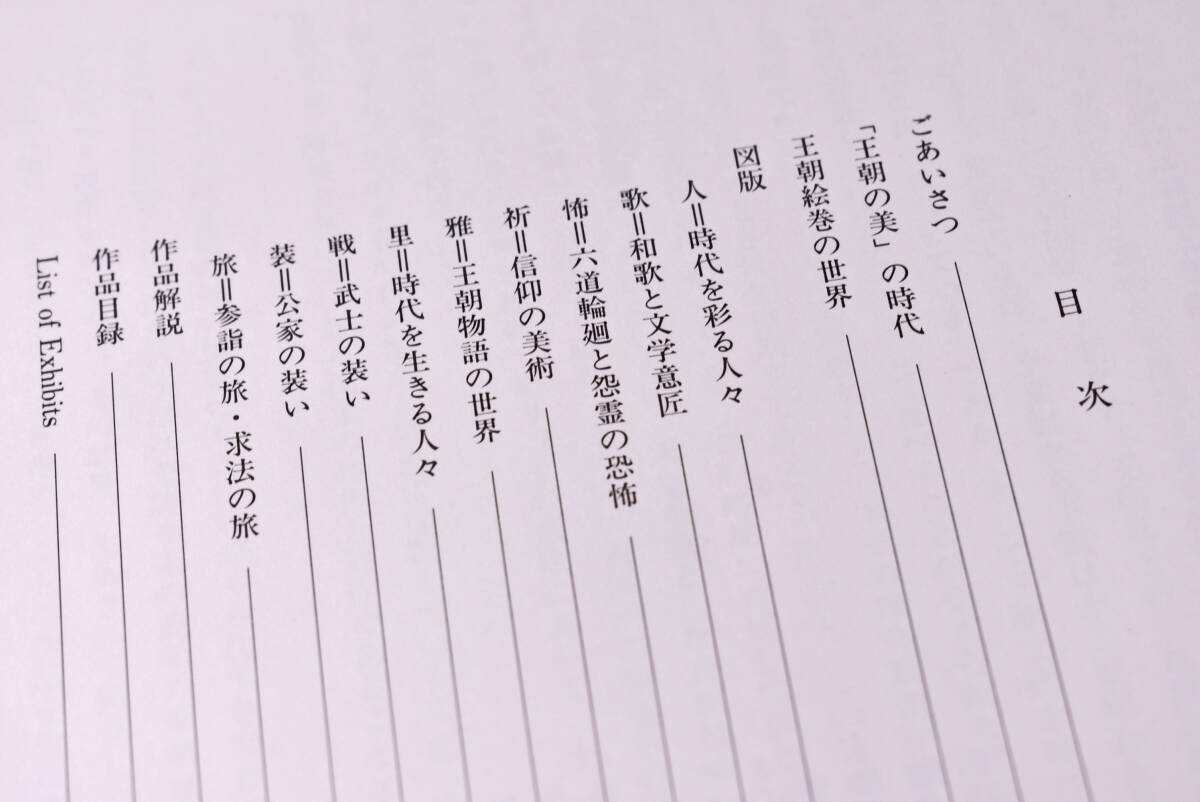 目次
ごあいさつ
「王朝の美」の時代
王朝絵巻の世界
図版
人＝時代を彩る人々
歌＝和歌と文学意匠
怖＝六道輪廻と怨霊の恐怖
祈＝信仰の美術
雅＝王朝物語の世界
里＝時代を生きる人々
戦＝武士の装い
装＝公家の装い
旅＝参詣の旅・求法の旅
作品解説
作品目録
List of Exhibits